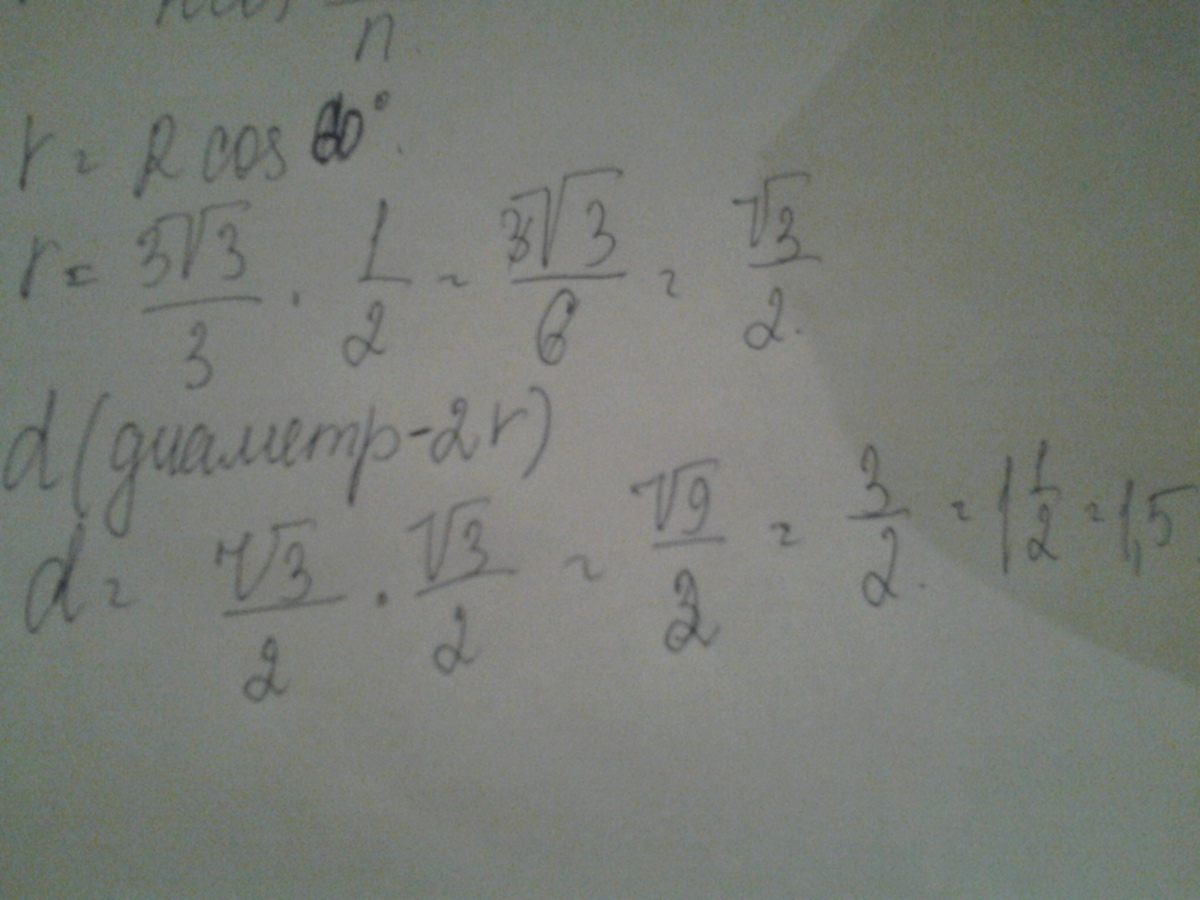 n
r = R cos 60°.
r = 3√3/3 · 1/2 = 3√3/6 = √3/2.
d (диаметр-2r)
d = √3/2 · √3/2 = √9/2 = 3/2. = 1 1/2 = 1,5